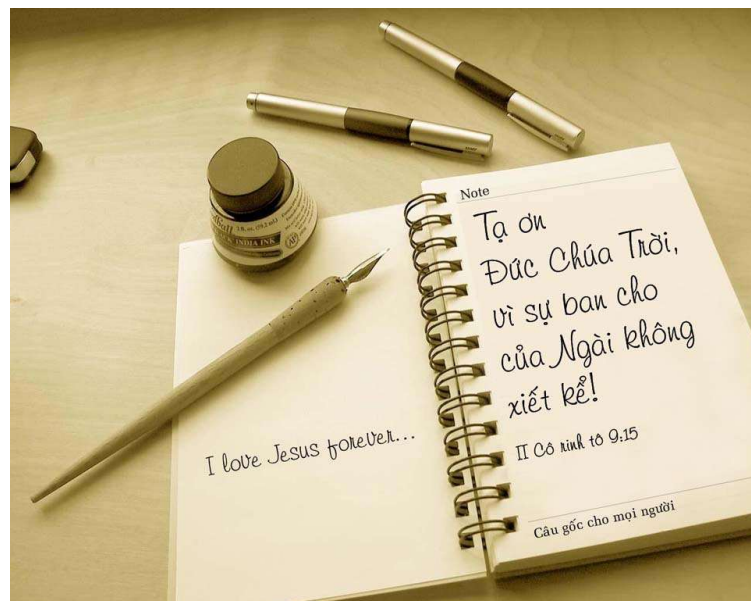 I love Jesus forever...
Note
Tạ ơn
Đức Chúa Trời,
vì sự ban cho
của Ngài không
xiết kể!
II Cô rinh tô 9:15
Câu gốc cho mọi người
INDIA INK